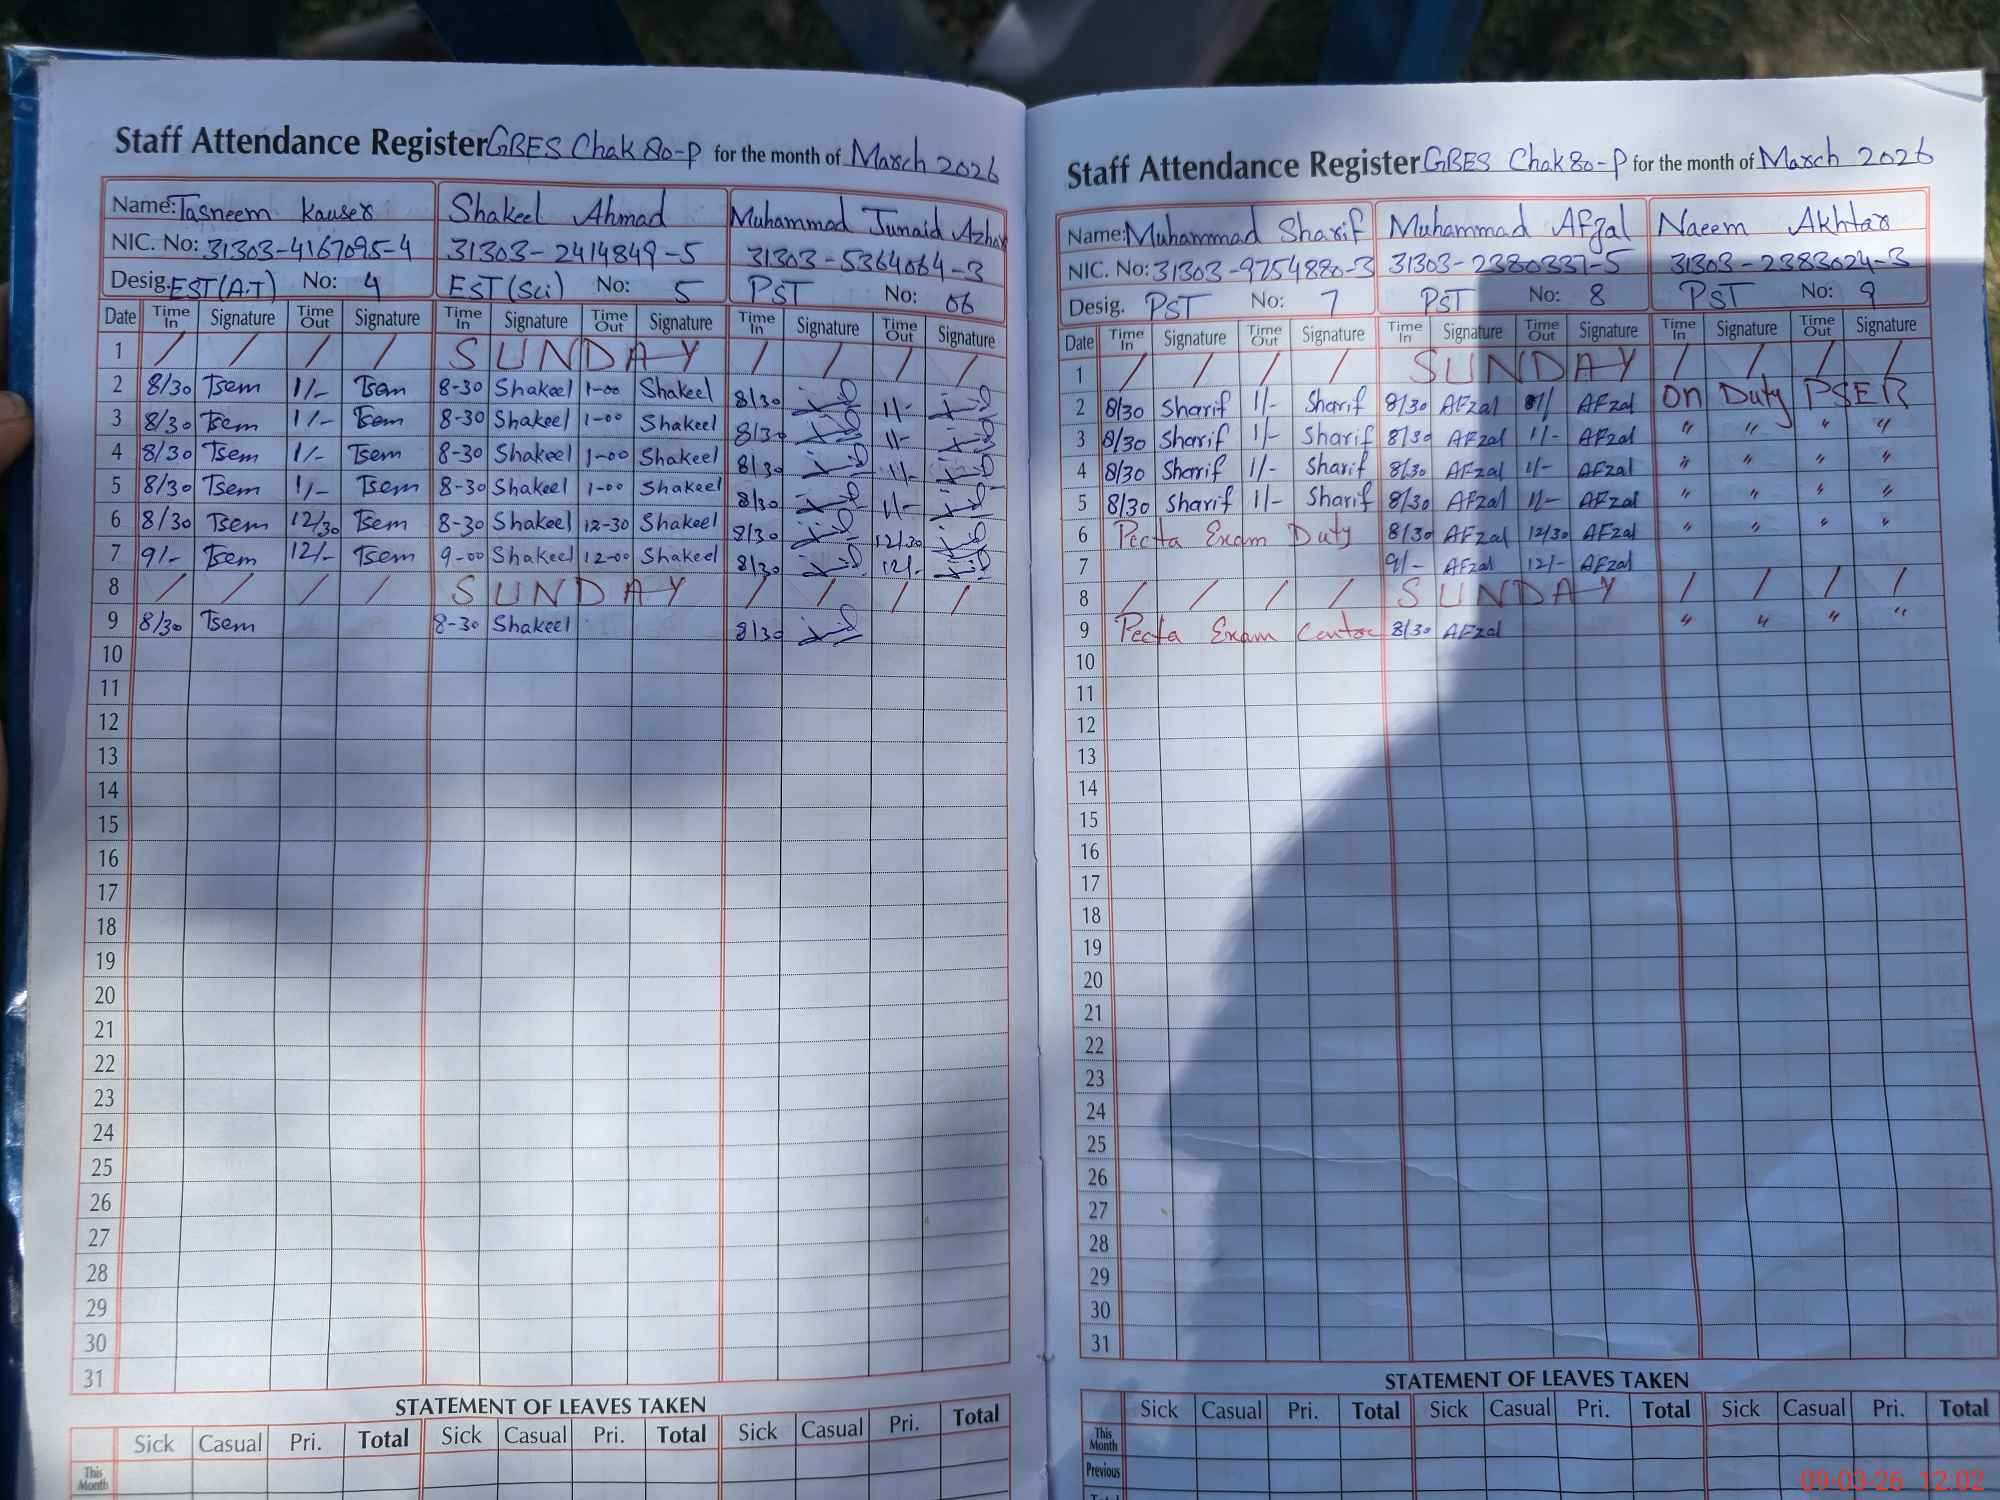 Staff Attendance Register GBES Chak 80-P for the month of March 2026
Name: Tasneem Kauser Shakeel Ahmad Muhammad Junaid Azhar
NIC. No: 31303-4167095-4 31303-2414849-5 31303-5364064-3
Desig. EST (A.T) No: 4 EST (Sci) No: 5 PST No: 06
Date Time In Signature Time Out Signature Time In Signature Time Out Signature Time In Signature Time Out Signature
1 / / / / SUNDAY / / / /
2 8/30 Tsem 1/- Tsem 8-30 Shakeel 1-00 Shakeel 8/30 1/-
3 8/30 Tsem 1/- Tsem 8-30 Shakeel 1-00 Shakeel 8/30 1/-
4 8/30 Tsem 1/- Tsem 8-30 Shakeel 1-00 Shakeel 8/30 1/-
5 8/30 Tsem 1/- Tsem 8-30 Shakeel 1-00 Shakeel 8/30 1/-
6 8/30 Tsem 12/30 Tsem 8-30 Shakeel 12-30 Shakeel 8/30 12/30
7 9/- Tsem 12/- Tsem 9-00 Shakeel 12-00 Shakeel 8/30 12/-
8 / / / / SUNDAY / / / /
9 8/30 Tsem 8-30 Shakeel 8/30
10
11
12
13
14
15
16
17
18
19
20
21
22
23
24
25
26
27
28
29
30
31
STATEMENT OF LEAVES TAKEN
Sick Casual Pri. Total Sick Casual Pri. Total Sick Casual Pri. Total
This Month
Staff Attendance Register GBES Chak 80-P for the month of March 2026
Name: Muhammad Sharif Muhammad Afzal Naeem Akhtar
NIC. No: 31303-9754880-3 31303-2380337-5 31303-2383024-3
Desig. PST No: 7 PST No: 8 PST No: 9
Date Time In Signature Time Out Signature Time In Signature Time Out Signature Time In Signature Time Out Signature
1 / / / / SUNDAY / / / /
2 8/30 Sharif 1/- Sharif 8/30 AFzal 1/ AFzal On Duty PSER
3 8/30 Sharif 1/- Sharif 8/30 AFzal 1/- AFzal " " " "
4 8/30 Sharif 1/- Sharif 8/30 AFzal 1/- AFzal " " " "
5 8/30 Sharif 1/- Sharif 8/30 AFzal 1/- AFzal " " " "
6 Pecta Exam Duty 8/30 AFzal 12/30 AFzal " " " "
7 9/- AFzal 12/- AFzal
8 / / / / SUNDAY / / / /
9 Pecta Exam 8/30 AFzal " " " "
10
11
12
13
14
15
16
17
18
19
20
21
22
23
24
25
26
27
28
29
30
31
STATEMENT OF LEAVES TAKEN
Sick Casual Pri. Total Sick Casual Pri. Total Sick Casual Pri. Total
This Month
Previous
09-03-26 12:02